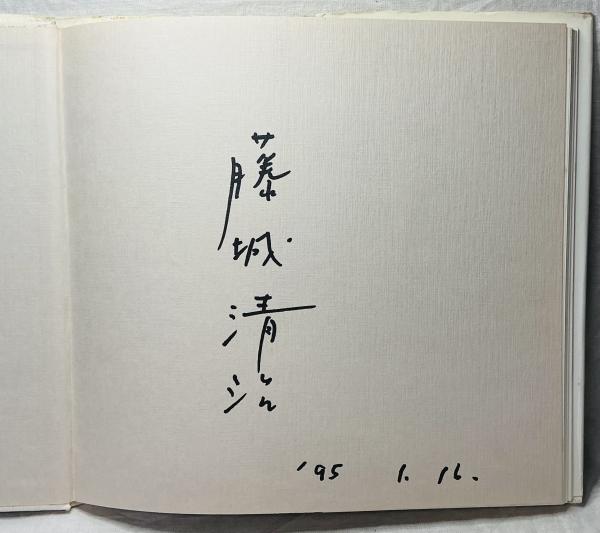 藤城清治
'95 1. 16.